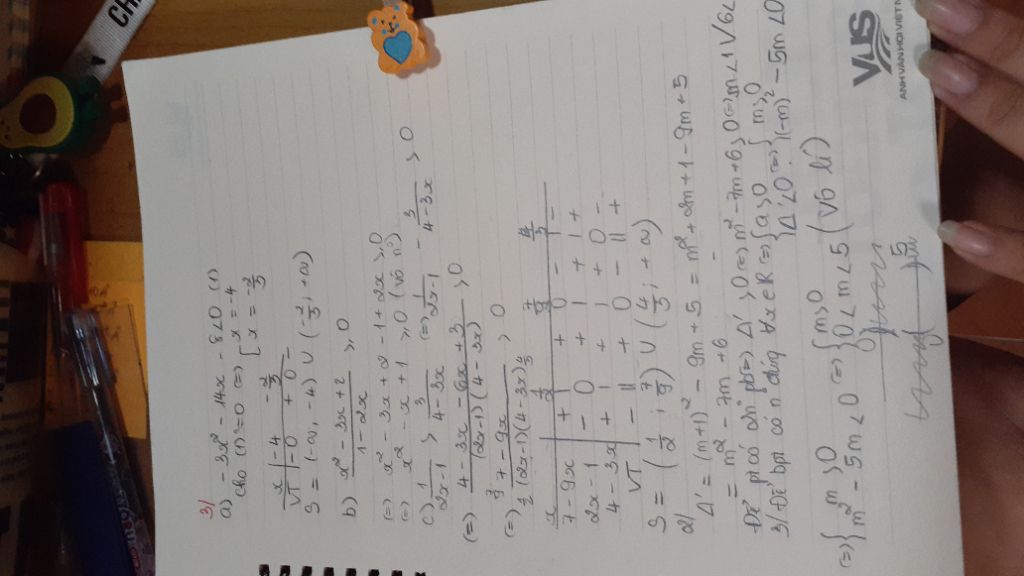 3/
a) -3x² - 14x - 8 < 0 (1)
cho (1) = 0 (=) [ x = -4
x = -2/3
x | -4 -2/3
VT | - 0 + 0 -
S = (-∞, -4) ∪ (-2/3; +∞)
b) x² - 3x + 2 / 1 - 2x ≥ 0
(=) x² - 3x + 2 - 1 + 2x ≥ 0
(=) x² - x + 1 ≥ 0 (vô n°)
c) 1/2x-1 > 3/4-3x (=) 1/2x-1 - 3/4-3x > 0
(=) 4 - 3x - 6x + 3 / (2x-1)(4-3x) > 0
(=) 7 - 9x / (2x-1)(4-3x) > 0
x 1/2 7/9 4/3
7-9x | + | + 0 - | -
2x-1 | - 0 + | + | +
4-3x | + | + | + 0 -
VT | - || + 0 - || +
S = (1/2; 7/9) ∪ (4/3; +∞)
2/
Δ' = (m+1)² - 9m + 5 = m² + 2m + 1 - 9m + 5
= m² - 7m + 6
Để pt có 2n° pb (=) Δ' > 0 (=) m² - 7m + 6 > 0 (=) m < 1 V 6 <
3/ Để bpt có n° đúng ∀x ∈ R (=) { a > 0 (=) { m > 0
Δ' < 0 (-m)² - 5m < 0
(=) { m > 0 (=) { m > 0
m² - 5m < 0 0 < m < 5 (Vô lí)
VUS
ANH VAN HOI VIET